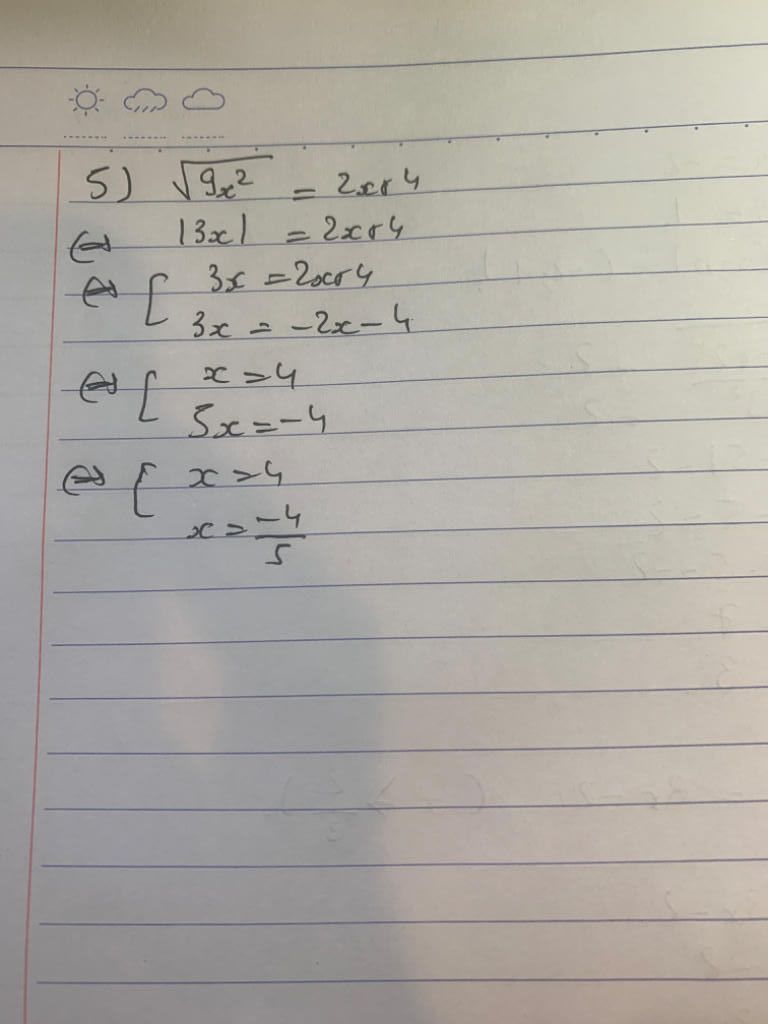 5) √9x² = 2x+4
⇔ |3x| = 2x+4
⇔ [ 3x = 2x+4
3x = -2x-4
⇔ [ x = 4
5x = -4
⇔ [ x = 4
x = -4/5